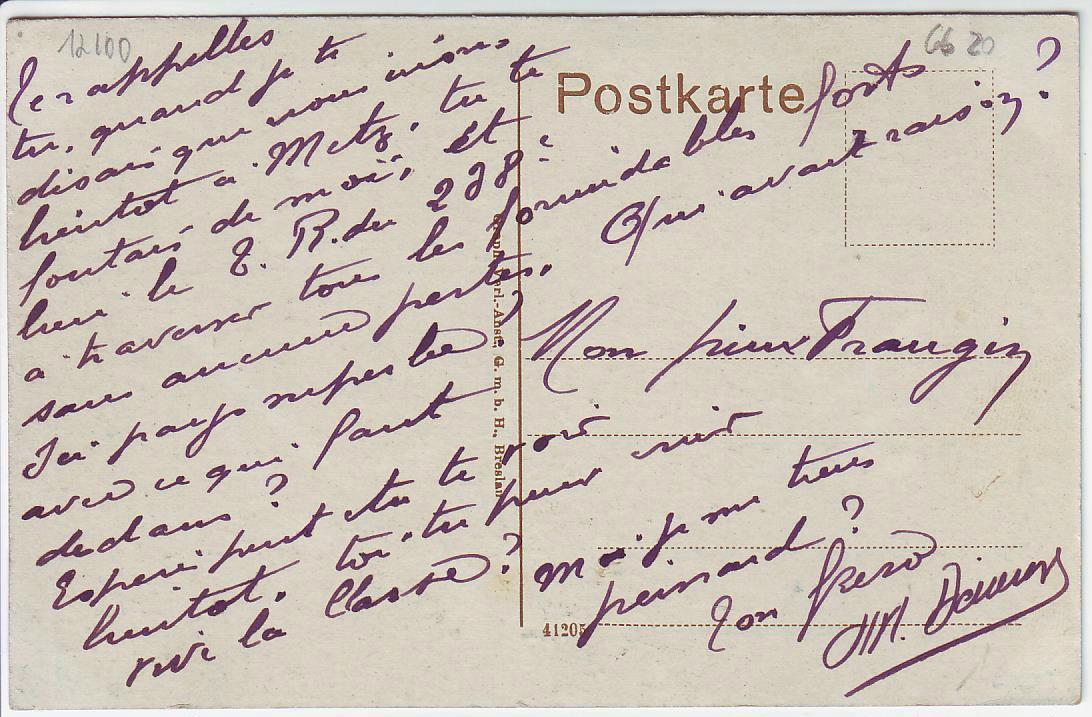 12100
66 20
Postkarte
Te rappelles
tu, quand je te
disais que nous irions
bientot a Metz, tu te
foutais de moi, et
bien le T. R. du 238?
a traversé tous les formidables forts ?
sans aucunes pertes. Qui avait raison.
Ici pays superbe
avec ce qui faut
dedans ?
Espere peut etre te voir
bientot. toi tu peux
vive la Classe ?
Mon vieux Frangin
venir
moi je me tiens
peinard ?
Ton frero
Verl.-Anst., G. m. b. H., Breslau
41205